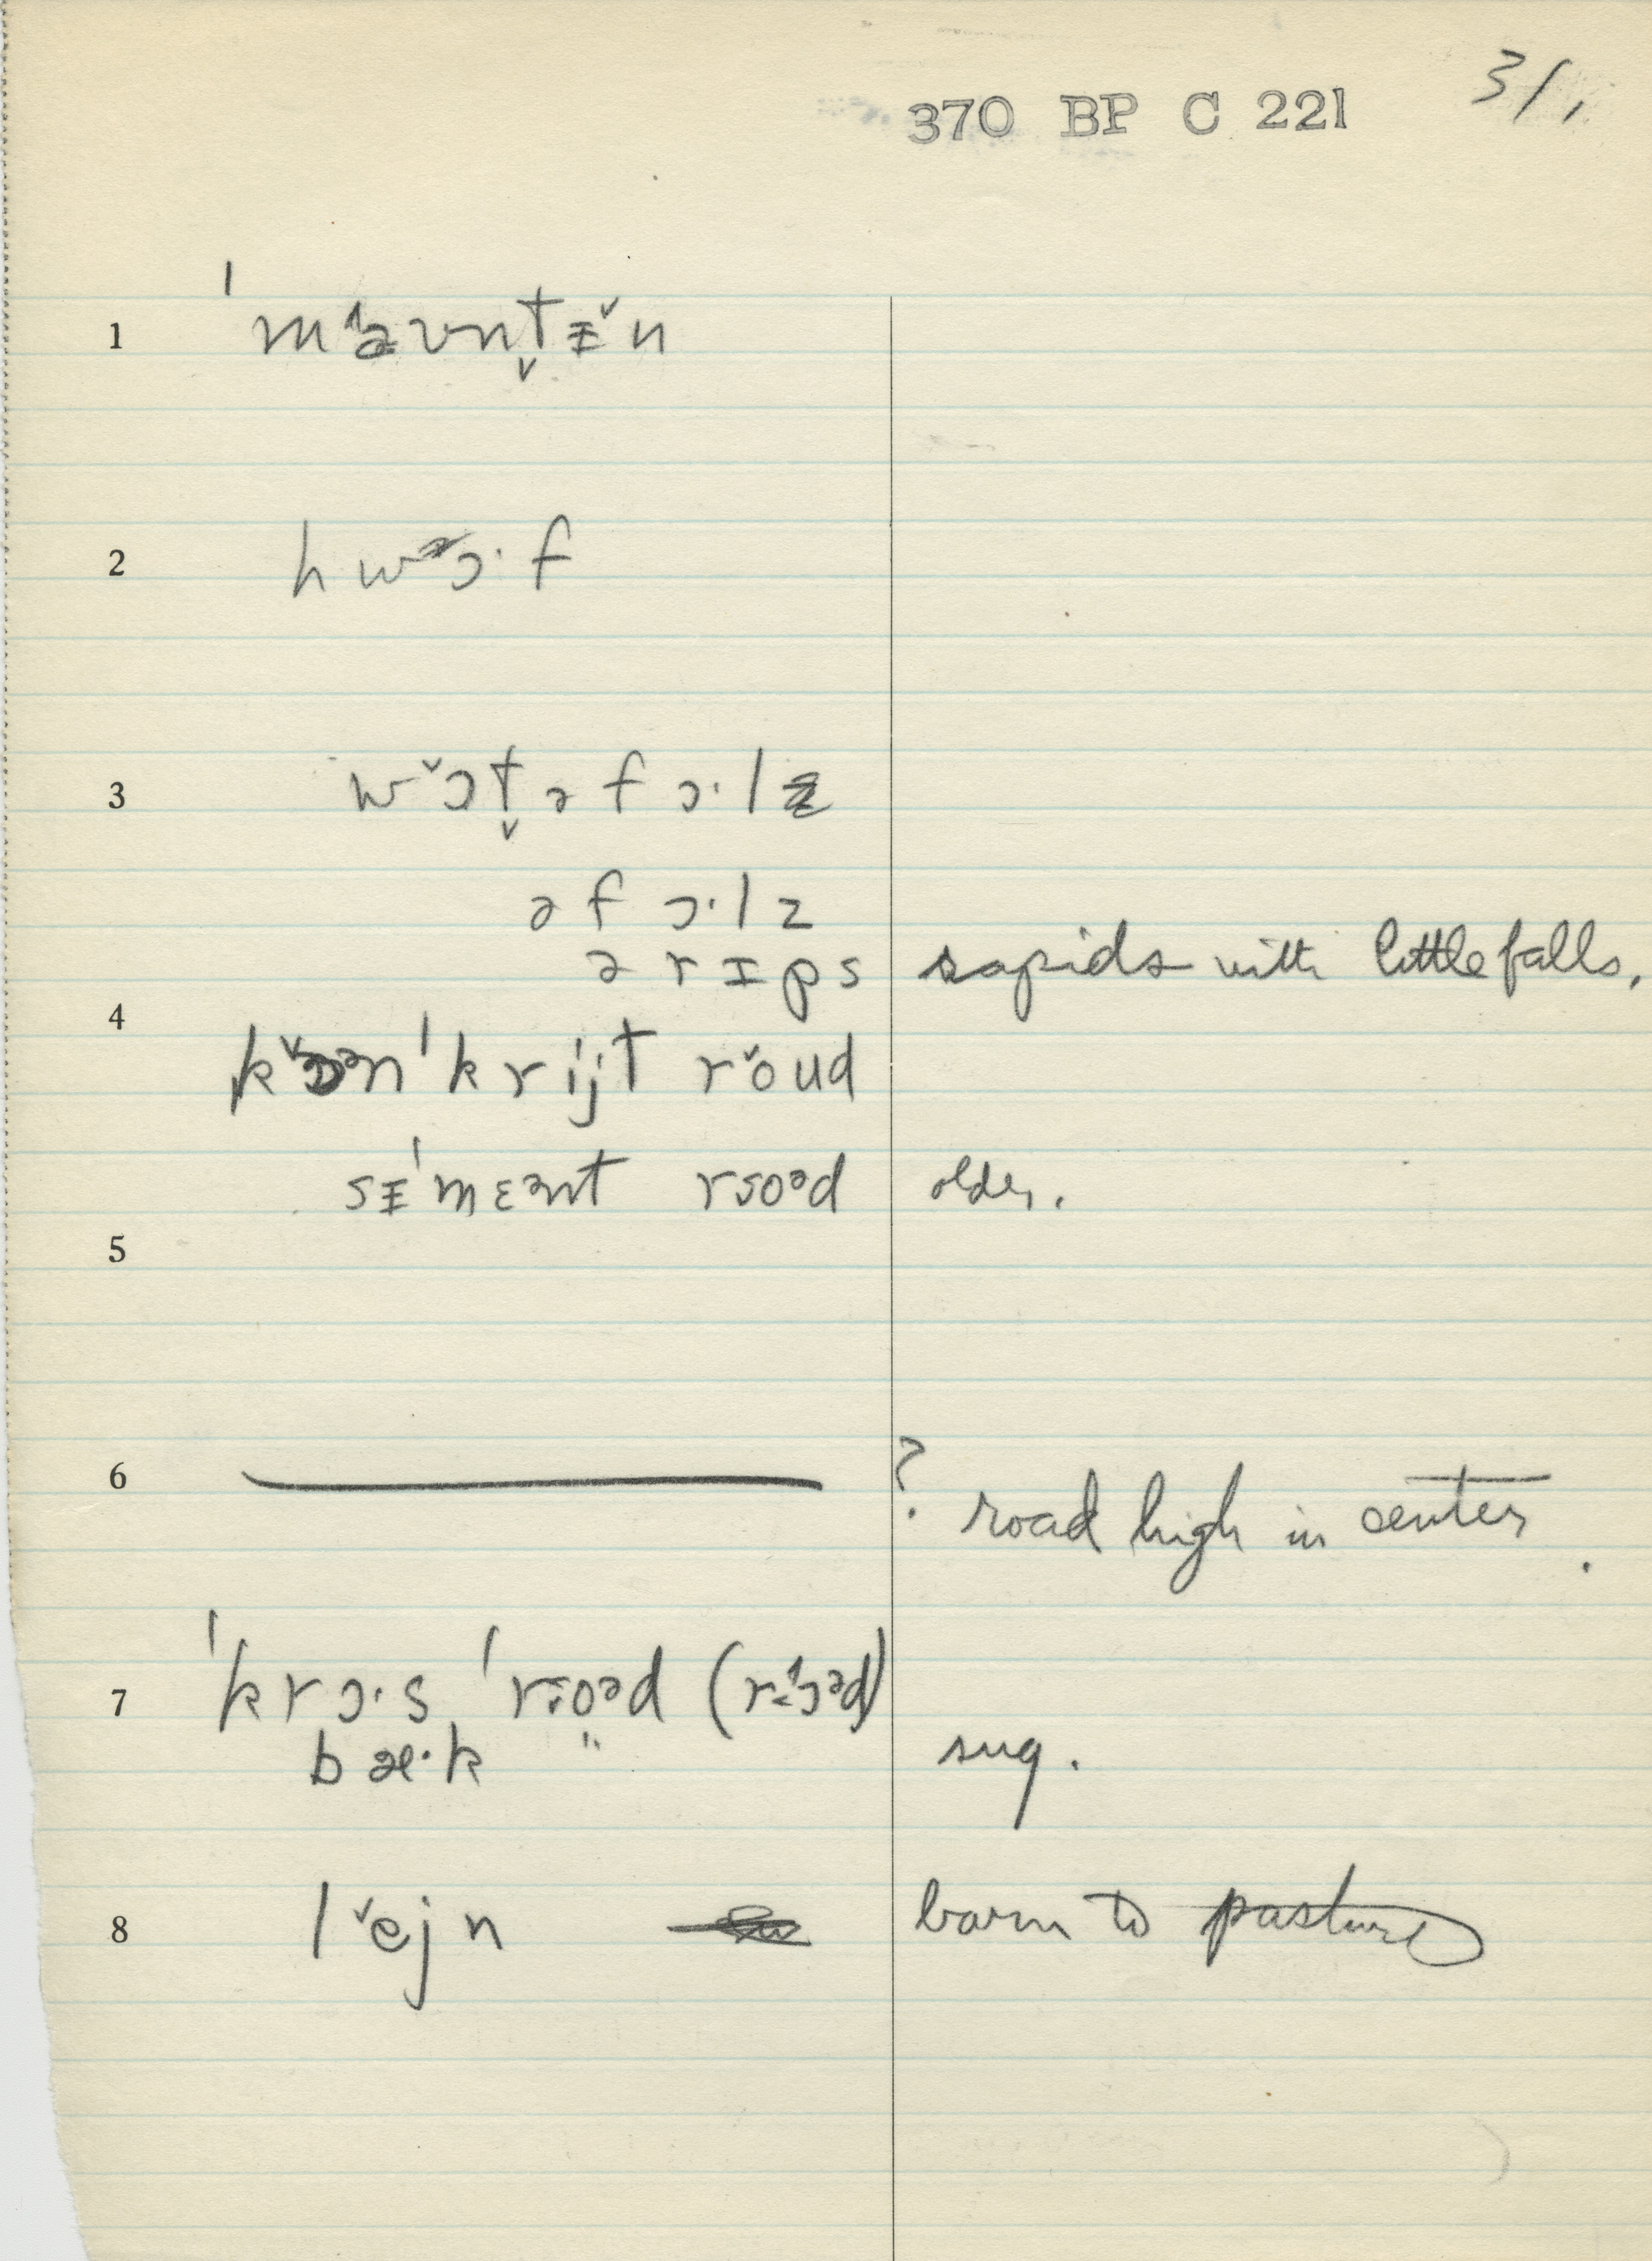 370 BP C 221 31,
1 ˈmaʊnt̬ɨ̌n
2 hwɔ·f
3 wɔ̌t̬ə fɔ·lz
ə fɔ·lz
ə rɪps rapids with little falls.
4
ˈkrijt rǒud
sɪˈmɛənt road older.
5
6 ? road high in center.
7 ˈkrɔ·s ˈroəd
bæ·k " sug.
8 lějn barn to pasture